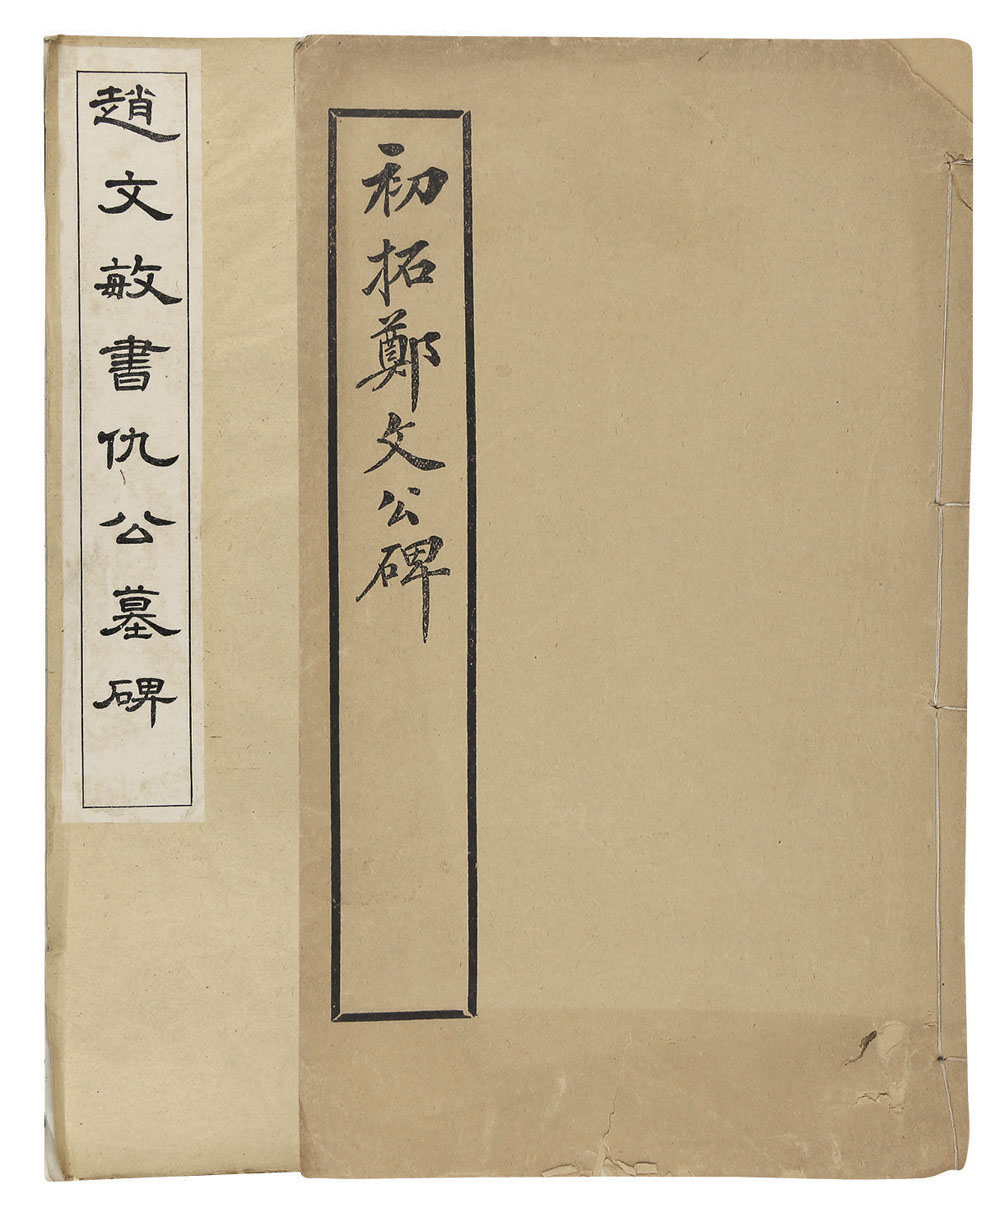 初拓鄭文公碑
趙文敏書仇公墓碑